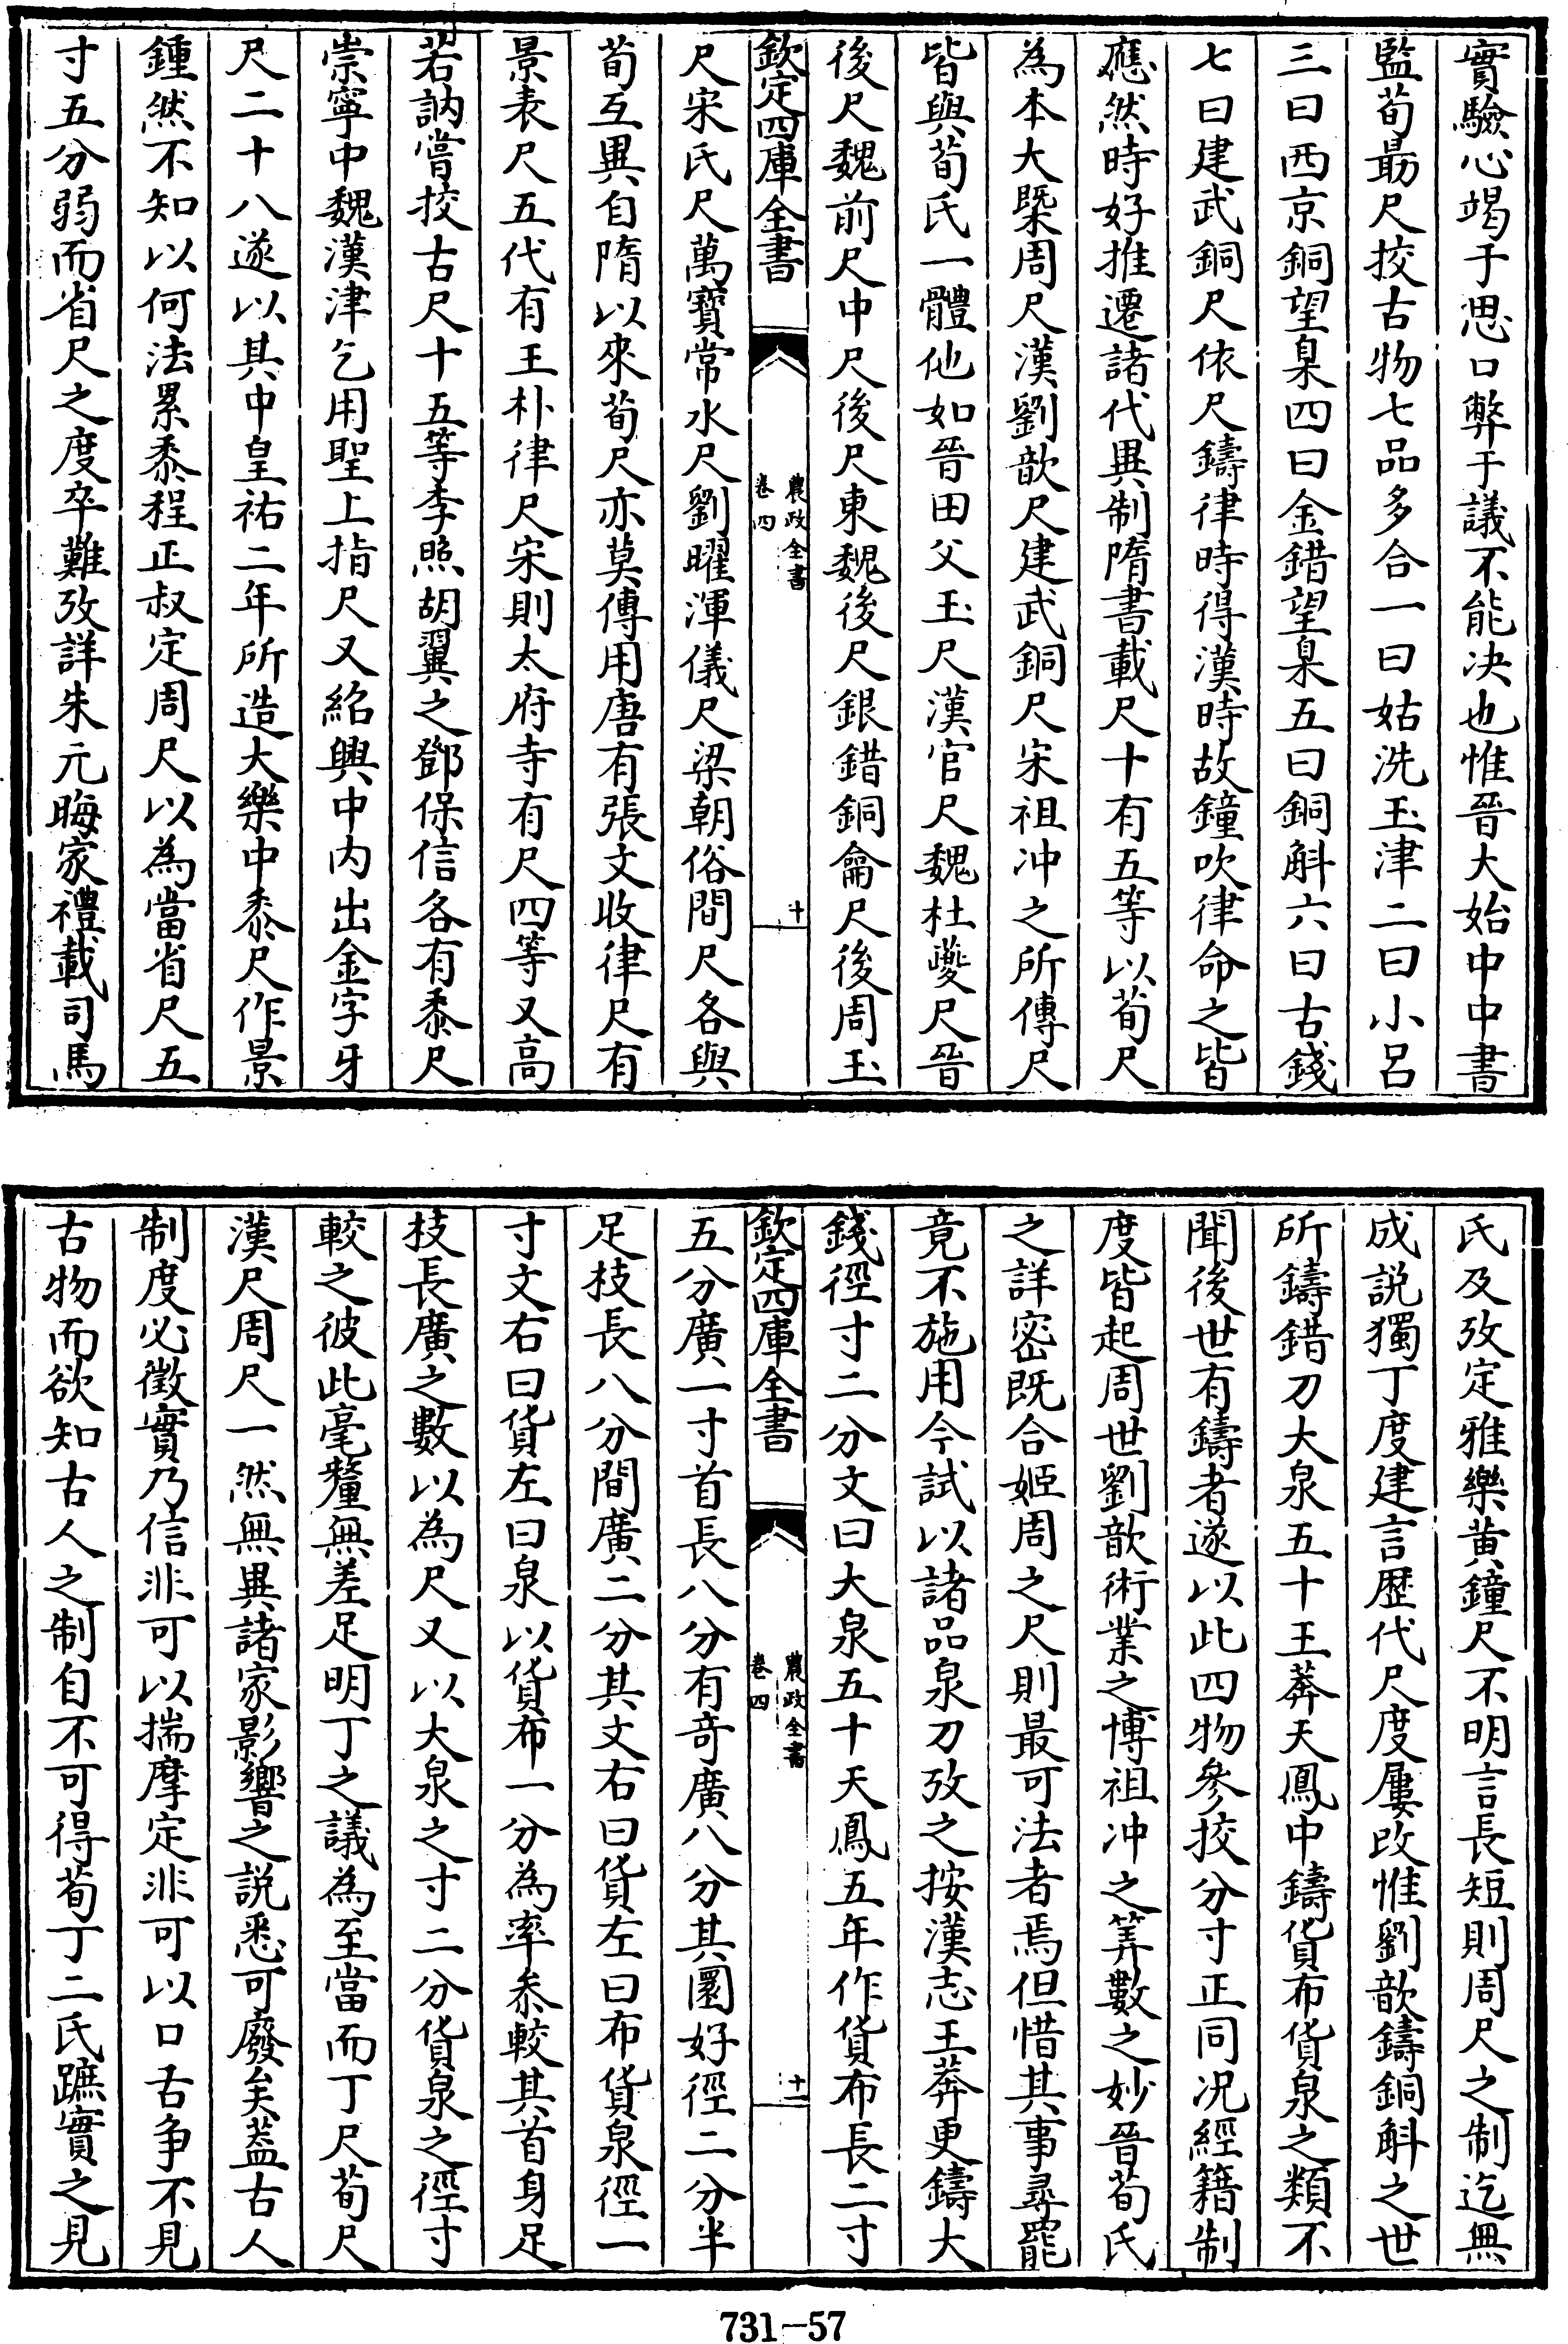 實驗心竭于思口弊于議不能决也惟晉大始中中書
監荀勗尺挍古物七品多合一曰姑洗玉津二曰小呂
三曰西京銅望臬四曰金錯望臬五曰銅斛六曰古錢
七曰建武銅尺依尺鑄律時得漢時故鐘吹律命之皆
應然時好推遷諸代異制隋書載尺十有五等以荀尺
為本大槩周尺漢劉歆尺建武銅尺宋祖沖之所傳尺
皆與荀氏一體他如晉田父玉尺漢官尺魏杜夔尺晉
後尺魏前尺中尺後尺東魏後尺銀錯銅龠尺後周玉
欽定四庫全書
農政全書
卷四
十
尺宋氏尺萬寶常水尺劉曜渾儀尺梁朝俗間尺各與
荀互異自隋以來荀尺亦莫傳用唐有張文收律尺有
景表尺五代有王朴律尺宋則太府寺有尺四等又高
若訥嘗挍古尺十五等李照胡翼之鄧保信各有黍尺
崇寧中魏漢津乞用聖上指尺又紹興中內出金字牙
尺二十八遂以其中皇祐二年所造大樂中黍尺作景
鍾然不知以何法累黍程正叔定周尺以為當省尺五
寸五分弱而省尺之度卒難攷詳朱元晦家禮載司馬
氏及攷定雅樂黄鐘尺不明言長短則周尺之制迄無
成説獨丁度建言歷代尺度屢改惟劉歆鑄銅斛之世
所鑄錯刀大泉五十王莽天鳳中鑄貨布貨泉之類不
聞後世有鑄者遂以此四物參挍分寸正同况經籍制
度皆起周世劉歆術業之博祖沖之筭數之妙晉荀氏
之詳密既合姬周之尺則最可法者焉但惜其事尋罷
竟不施用今試以諸品泉刀攷之按漢志王莽更鑄大
錢徑寸二分文曰大泉五十天鳳五年作貨布長二寸
欽定四庫全書
農政全書
卷四
十一
五分廣一寸首長八分有奇廣八分其圜好徑二分半
足枝長八分間廣二分其文右曰貨左曰布貨泉徑一
寸文右曰貨左曰泉以貨布一分為率叅較其首身足
枝長廣之數以為尺又以大泉之寸二分貨泉之徑寸
較之彼此毫釐無差足明丁之議為至當而丁尺荀尺
漢尺周尺一然無異諸家影響之説悉可廢矣葢古人
制度必徵實乃信非可以揣摩定非可以口舌爭不見
古物而欲知古人之制自不可得荀丁二氏蹠實之見
731—57